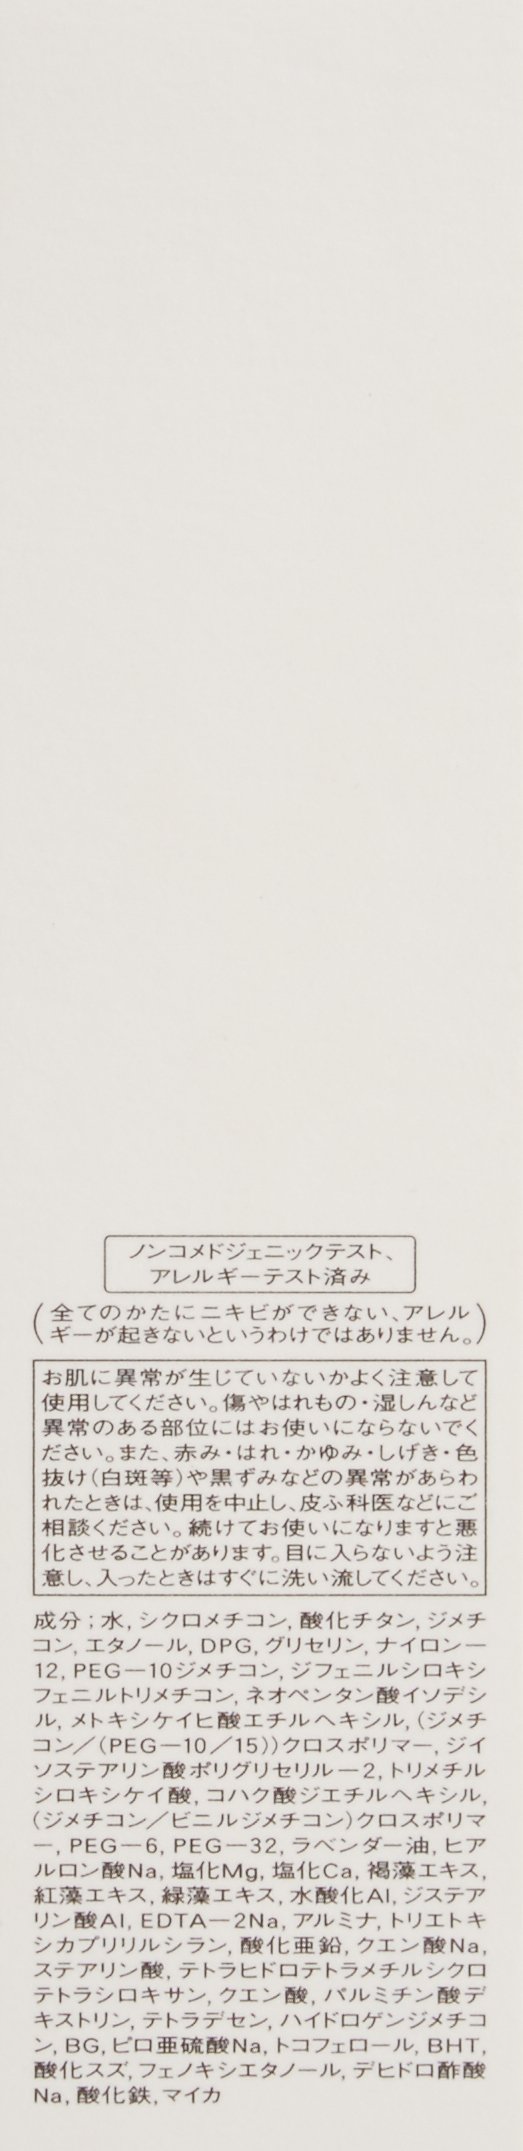 ノンコメドジェニックテスト、
アレルギーテスト済み
(全てのかたにニキビができない、アレル
ギーが起きないというわけではありません。)
お肌に異常が生じていないかよく注意して
使用してください。傷やはれもの・湿しんなど
異常のある部位にはお使いにならないでく
ださい。また、赤み・はれ・かゆみ・しげき・色
抜け(白斑等)や黒ずみなどの異常があらわ
れたときは、使用を中止し、皮ふ科医などにご
相談ください。続けてお使いになりますと悪
化させることがあります。目に入らないよう注
意し、入ったときはすぐに洗い流してください。
成分;水, シクロメチコン, 酸化チタン, ジメチ
コン, エタノール, DPG, グリセリン, ナイロンー
12, PEGー10ジメチコン, ジフェニルシロキシ
フェニルトリメチコン, ネオペンタン酸イソデシ
ル, メトキシケイヒ酸エチルヘキシル, (ジメチ
コン/(PEGー10/15))クロスポリマー, ジイ
ソステアリン酸ポリグリセリルー2, トリメチル
シロキシケイ酸, コハク酸ジエチルヘキシル,
(ジメチコン/ビニルジメチコン)クロスポリマ
ー, PEGー6, PEGー32, ラベンダー油, ヒア
ルロン酸Na, 塩化Mg, 塩化Ca, 褐藻エキス,
紅藻エキス, 緑藻エキス, 水酸化Al, ジステア
リン酸Al, EDTAー2Na, アルミナ, トリエトキ
シカプリリルシラン, 酸化亜鉛, クエン酸Na,
ステアリン酸, テトラヒドロテトラメチルシクロ
テトラシロキサン, クエン酸, パルミチン酸デ
キストリン, テトラデセン, ハイドロゲンジメチコ
ン, BG, ピロ亜硫酸Na, トコフェロール, BHT,
酸化スズ, フェノキシエタノール, デヒドロ酢酸
Na, 酸化鉄, マイカ